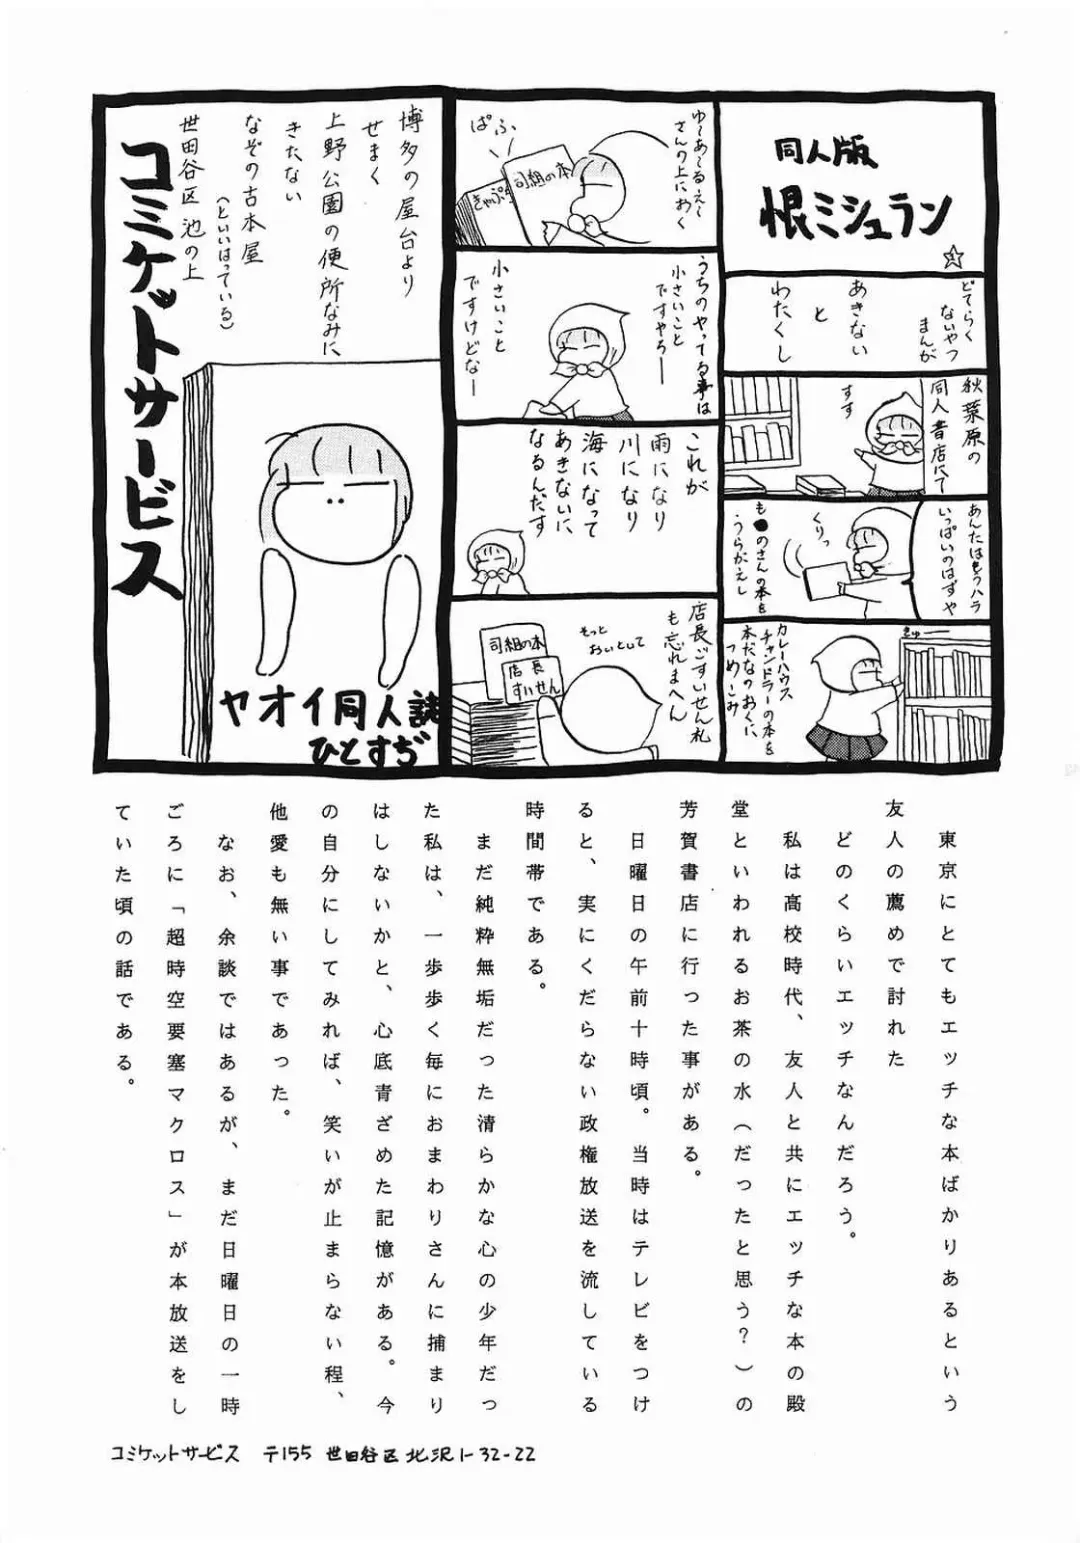 同人版
恨ミシュラン
どてらく
ないやつ
まんが
あきない
と
わたくし
秋葉原の
同人書店にて
すす
あんたはもうハラ
いっぱいのはずや
くりっ
も●のさんの本を
うらがえし
きゅーー
カレーハウス
チャンドラーの本を
本だなのおくに
つめこみ
ゆ〜あ〜るえ〜
さんの上におく
ぱふ
司組の本
きゃぷ
うちのやってる事は
小さいこと
ですやろー
小さいこと
ですけどなー
これが
雨になり
川になり
海になって
あきないに
なるんだす
店長ごすいせん札
も忘れまへん
そっと
おいとして
司組の本
店長
すいせん
博多の屋台より
せまく
上野公園の便所なみに
きたない
なぞの古本屋
(といいはっている)
世田谷区 池の上
コミケットサービス
ヤオイ同人誌
ひとすぢ
東京にとてもエッチな本ばかりあるという
友人の薦めで討れた
どのくらいエッチなんだろう。
私は高校時代、友人と共にエッチな本の殿
堂といわれるお茶の水(だったと思う?)の
芳賀書店に行った事がある。
日曜日の午前十時頃。当時はテレビをつけ
ると、実にくだらない政権放送を流している
時間帯である。
まだ純粋無垢だった清らかな心の少年だっ
た私は、一歩歩く毎におまわりさんに捕まり
はしないかと、心底青ざめた記憶がある。今
の自分にしてみれば、笑いが止まらない程、
他愛も無い事であった。
なお、余談ではあるが、まだ日曜日の一時
ごろに「超時空要塞マクロス」が本放送をし
ていた頃の話である。
コミケットサービス 〒155 世田谷区北沢1-32-22